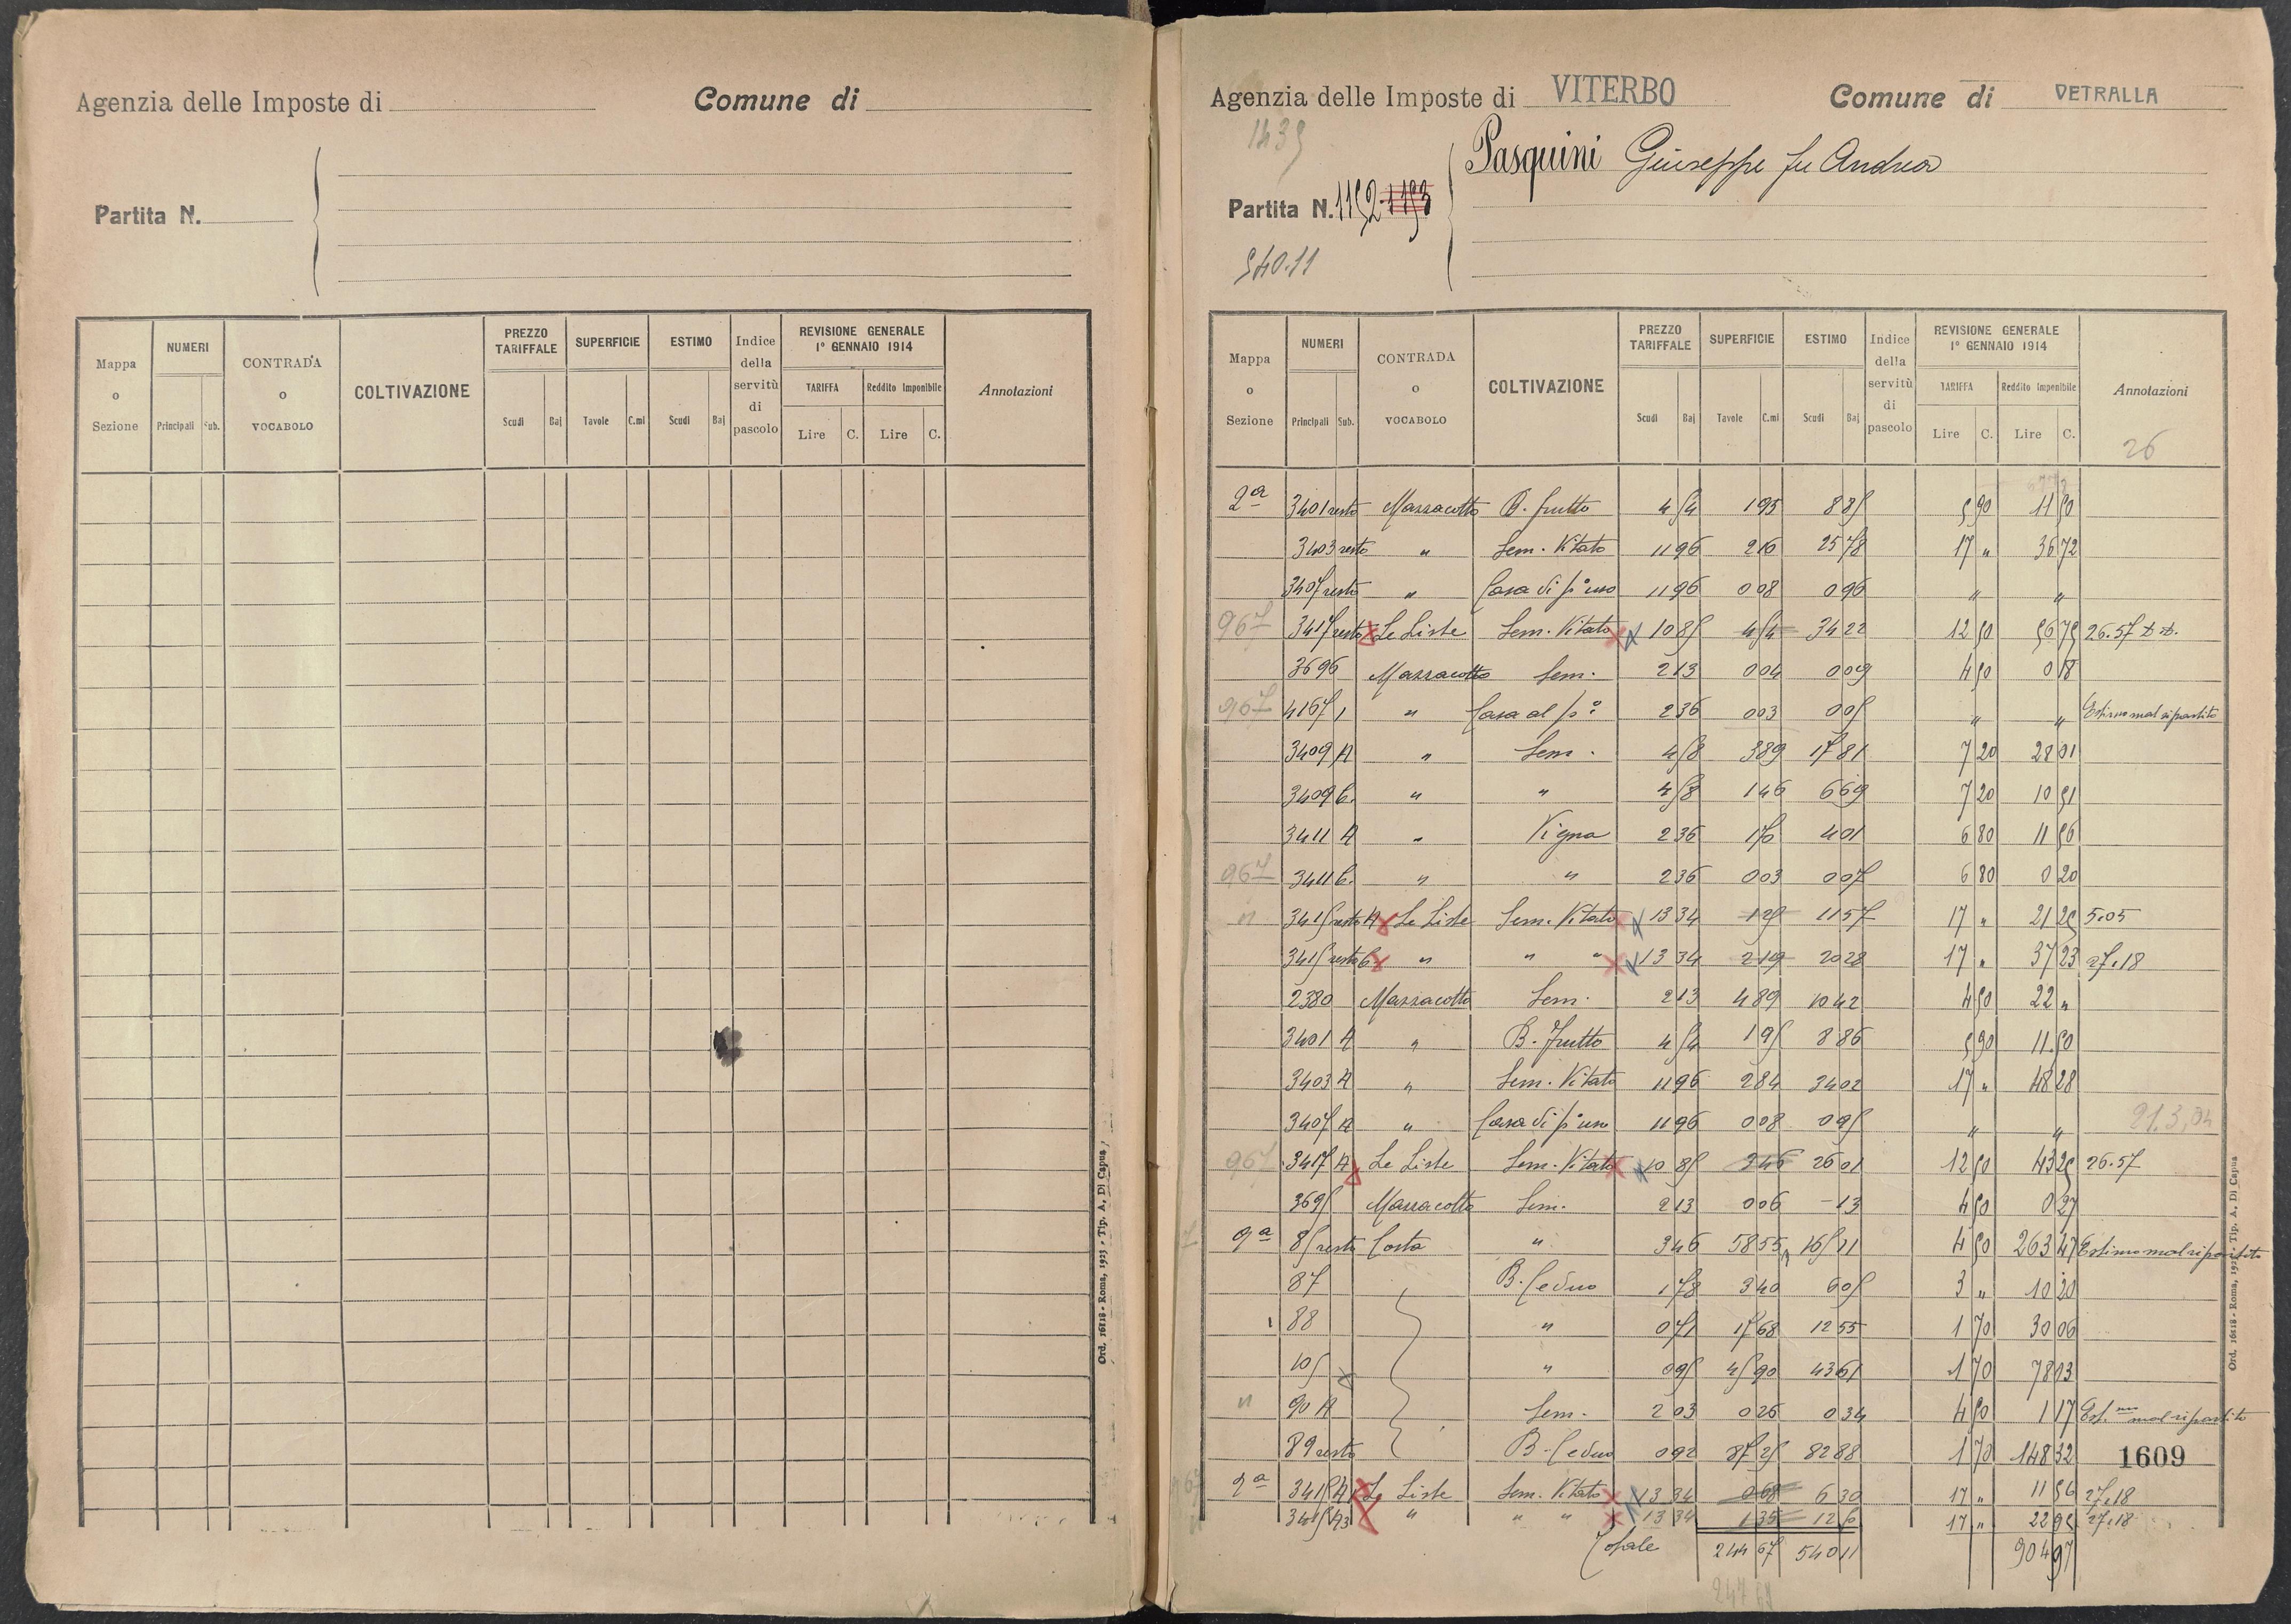 Agenzia delle Imposte di
Comune di
Partita N.
Mappa o Sezione
NUMERI
Principali
Sub.
CONTRADA o VOCABOLO
COLTIVAZIONE
PREZZO TARIFFALE
Scudi
Baj
SUPERFICIE
Tavole
C.mi
ESTIMO
Scudi
Baj
Indice della servitù di pascolo
REVISIONE GENERALE 1° GENNAIO 1914
TARIFFA
Lire
C.
Reddito Imponibile
Lire
C.
Annotazioni
Ord. 16118 - Roma, 1923 - Tip. A. Di Capua
Agenzia delle Imposte di VITERBO
Comune di VETRALLA
1439
Pasquini Giuseppe fu Andrea
Partita N. 1152
540.11
Mappa o Sezione
NUMERI
Principali
Sub.
CONTRADA o VOCABOLO
COLTIVAZIONE
PREZZO TARIFFALE
Scudi
Baj
SUPERFICIE
Tavole
C.mi
ESTIMO
Scudi
Baj
Indice della servitù di pascolo
REVISIONE GENERALE 1° GENNAIO 1914
TARIFFA
Lire
C.
Reddito Imponibile
Lire
C.
Annotazioni
26
2a 3401 resto Mazzacotto B. frutto 4 54 1 95 8 85 5 90 11 50
3403 resto " Sem. Vitato 11 96 2 16 25 78 17 " 36 72
3407 resto " Casa di p° uso 11 96 0 08 0 96 " "
967 3417 resto Le Liste Sem. Vitato 10 85 4 54 34 22 12 50 56 75 26.57
3696 Mazzacotto Sem. 2 13 0 04 0 09 4 50 0 18
967 4167 1 " Casa al p° 2 36 0 03 0 05 " " Estimo mal ripartito
3409 A " Sem. 4 58 3 89 17 81 7 20 28 01
3409 b. " " 4 58 1 46 6 69 7 20 10 51
3411 A " Vigna 2 36 1 70 4 01 6 80 11 56
967 3411 b. " " 2 36 0 03 0 07 6 80 0 20
" 3415 resto A Le Liste Sem. Vitato 13 34 1 25 11 57 17 " 21 25 5.05
3415 resto b. " " " 13 34 2 19 20 28 17 " 37 23 27.18
2380 Mazzacotto Sem. 2 13 4 89 10 42 4 50 22 "
3401 A " B. frutto 4 54 1 95 8 86 5 90 11.50
3403 A " Sem. Vitato 11 96 2 84 34 02 17 " 48 28
3407 A " Casa di p° uso 11 96 0 08 0 95 " "
967 3417 A Le Liste Sem. Vitato 10 85 3 46 26 01 12 50 43 25 26.57
3695 Mazzacotto Sem. 2 13 0 06 - 13 4 50 0 27
9a 85 resto Costa " 3 46 58 55 165 11 4 50 263 47 Estimo mal ripartito
87 B. Ceduo 1 78 3 40 6 05 3 " 10 20
88 " 0 71 17 68 12 55 1 70 30 06
105 " 0 95 45 90 43 61 1 70 78 03
" 90 A Sem. 2 03 0 26 0 34 4 50 1 17 Est.mo mal ripartito
89 resto B. Ceduo 0 92 87 25 82 88 1 70 148 32
1609
2a 3415 A1 Le Liste Sem. Vitato 13 34 0 68 6 30 17 " 11 56 27.18
3415 A3 " " " 13 34 1 35 12 50 17 " 22 95 27.18
Totale 244 67 540 11 904 97
Ord. 16118 - Roma, 1923 - Tip. A. Di Capua